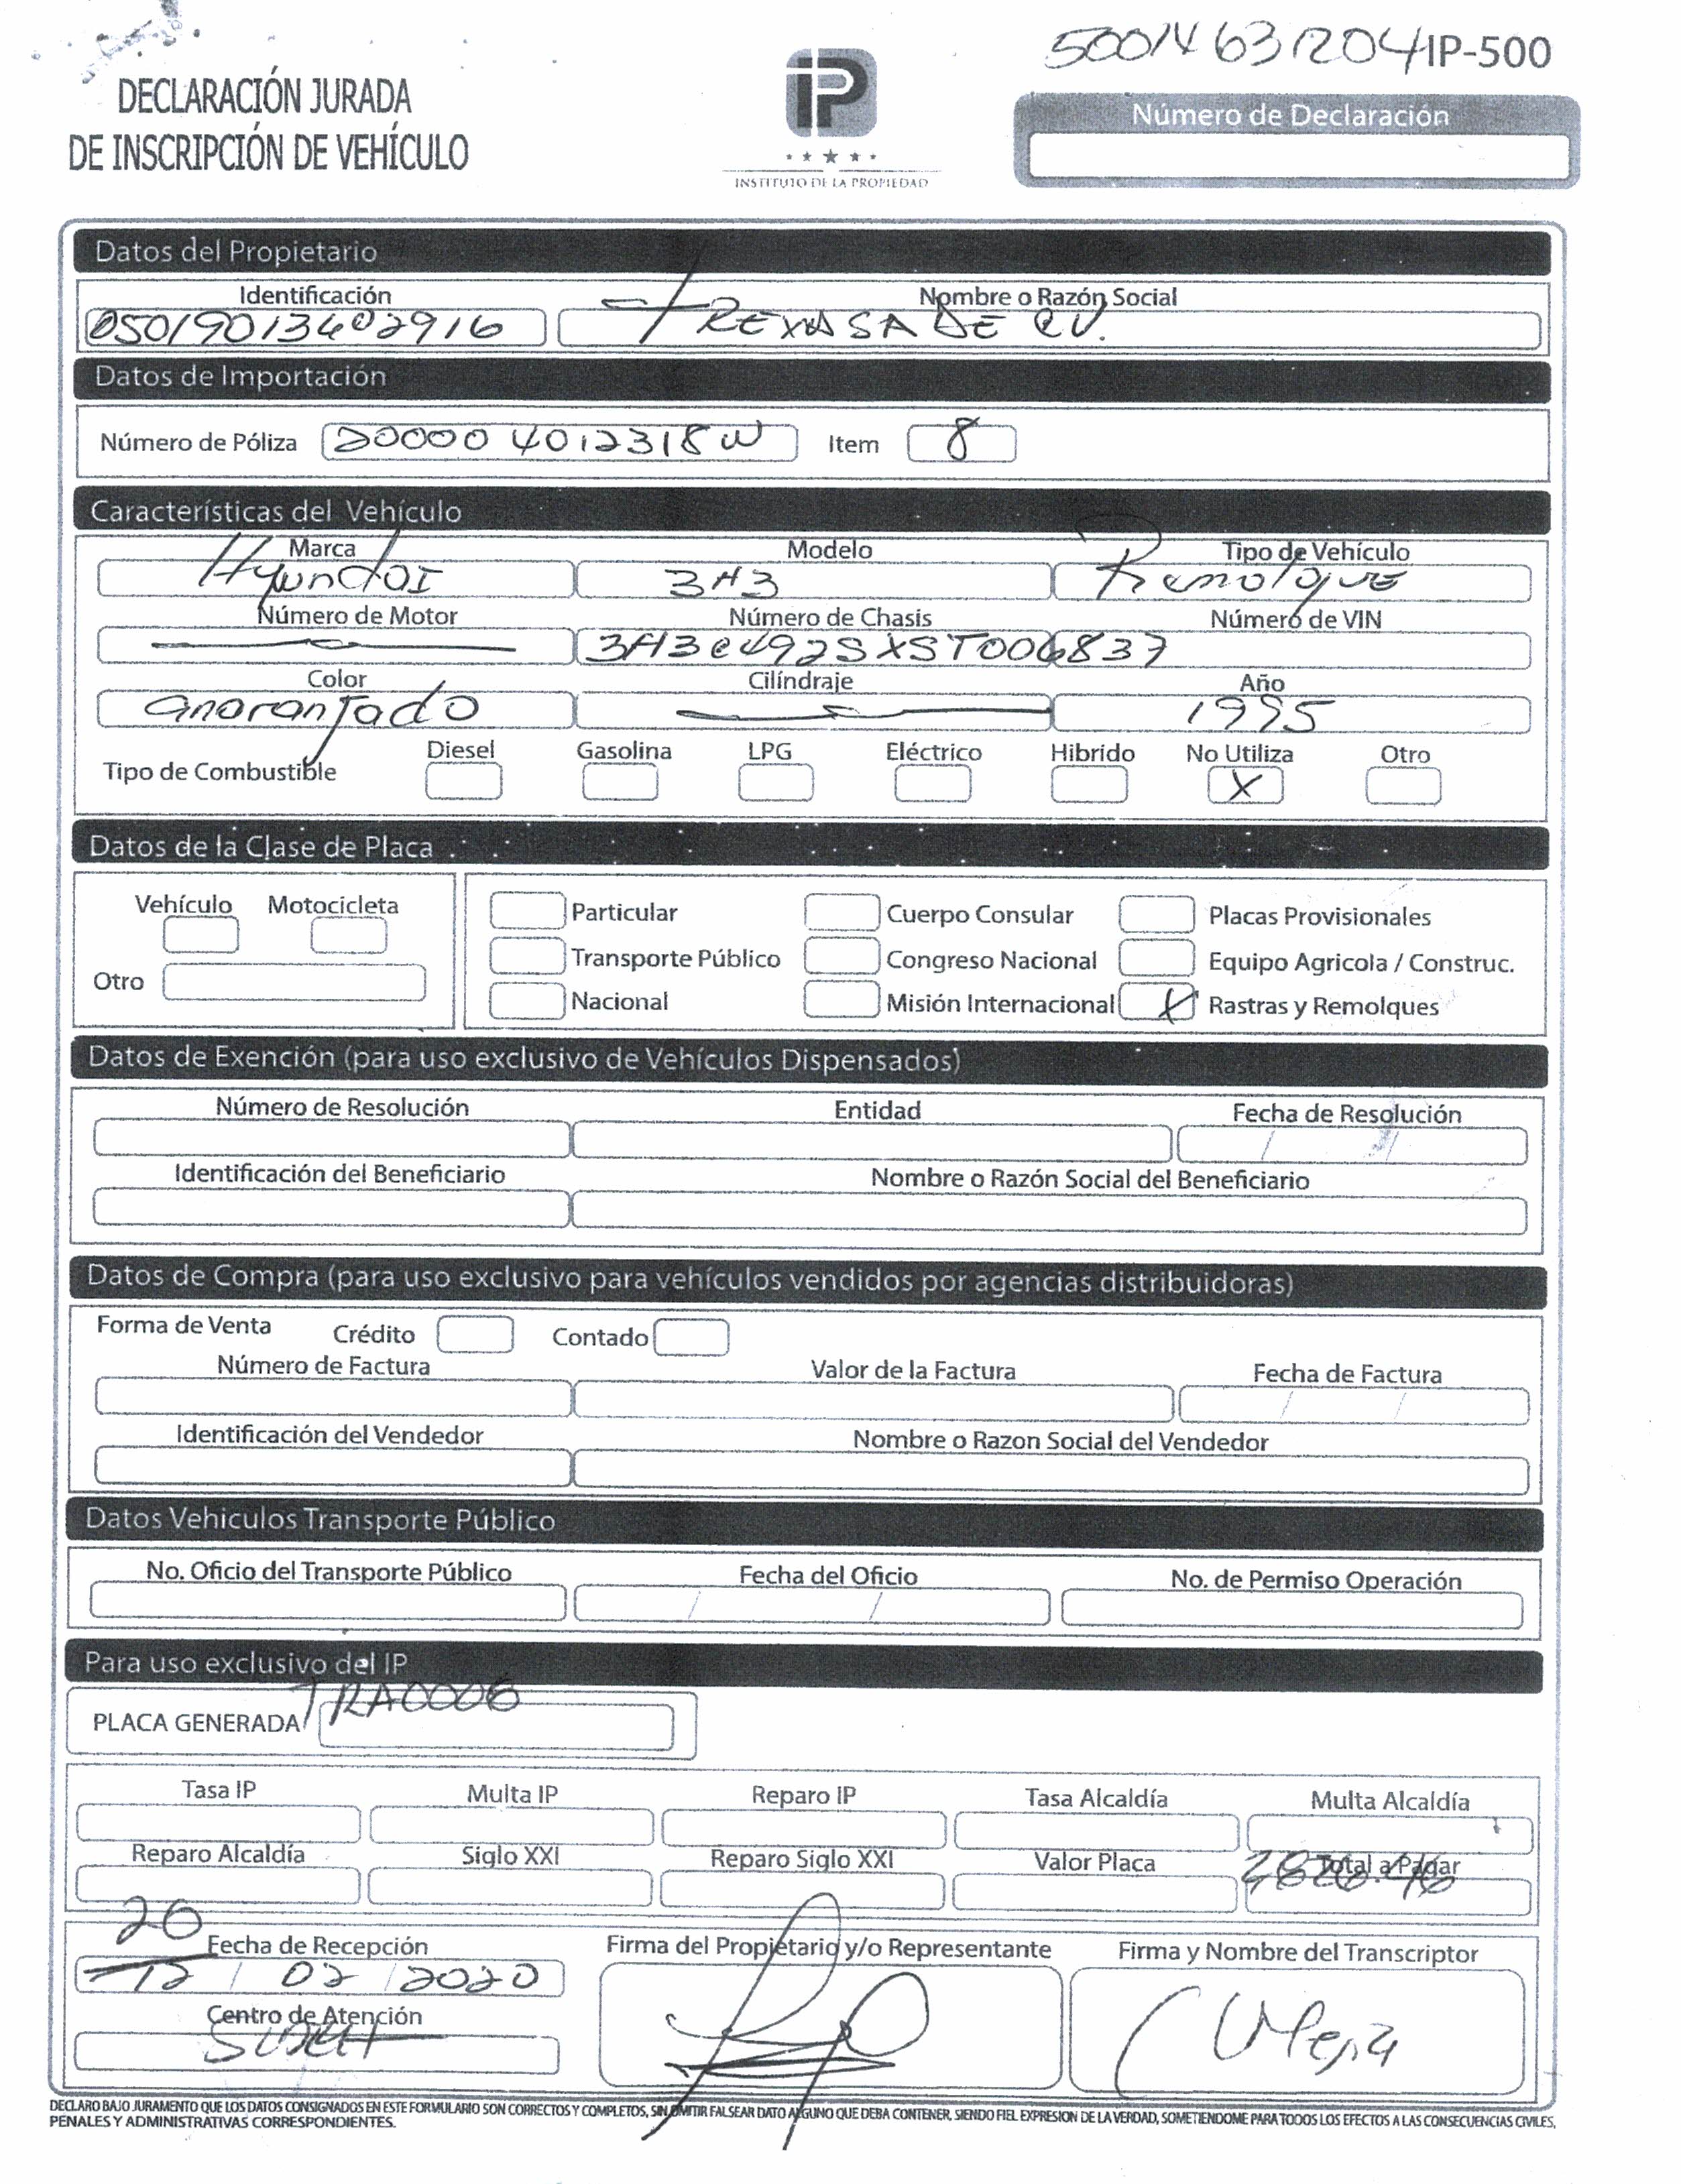 50014631204 IP-500
DECLARACIÓN JURADA
DE INSCRIPCIÓN DE VEHÍCULO
iP
INSTITUTO DE LA PROPIEDAD
Número de Declaración
Datos del Propietario
Identificación Nombre o Razón Social
05019013402916 TREXA SA DE CV.
Datos de Importación
Número de Póliza 20000 4012318W Item 8
Características del Vehículo
Marca Modelo Tipo de Vehículo
HyundaI 3H3 Remolque
Número de Motor Número de Chasis Número de VIN
3H3C492SXST006837
Color Cilíndraje Año
anaranjado 1995
Tipo de Combustible Diesel Gasolina LPG Eléctrico Hibrido No Utiliza Otro
X
Datos de la Clase de Placa
Vehículo Motocicleta
Otro
Particular Cuerpo Consular Placas Provisionales
Transporte Público Congreso Nacional Equipo Agricola / Construc.
Nacional Misión Internacional X Rastras y Remolques
Datos de Exención (para uso exclusivo de Vehículos Dispensados)
Número de Resolución Entidad Fecha de Resolución
/ /
Identificación del Beneficiario Nombre o Razón Social del Beneficiario
Datos de Compra (para uso exclusivo para vehículos vendidos por agencias distribuidoras)
Forma de Venta Crédito Contado
Número de Factura Valor de la Factura Fecha de Factura
/ /
Identificación del Vendedor Nombre o Razon Social del Vendedor
Datos Vehiculos Transporte Público
No. Oficio del Transporte Público Fecha del Oficio No. de Permiso Operación
/ /
Para uso exclusivo del IP
PLACA GENERADA TRA0006
Tasa IP Multa IP Reparo IP Tasa Alcaldía Multa Alcaldía
Reparo Alcaldía Siglo XXI Reparo Siglo XXI Valor Placa Total a Pagar
20
Fecha de Recepción Firma del Propietario y/o Representante Firma y Nombre del Transcriptor
12 / 02 / 2020
Centro de Atención
CMejia
DECLARO BAJO JURAMENTO QUE LOS DATOS CONSIGNADOS EN ESTE FORMULARIO SON CORRECTOS Y COMPLETOS, SIN OMITIR FALSEAR DATO ALGUNO QUE DEBA CONTENER, SIENDO FIEL EXPRESION DE LA VERDAD, SOMETIENDOME PARA TODOS LOS EFECTOS A LAS CONSECUENCIAS CIVILES,
PENALES Y ADMINISTRATIVAS CORRESPONDIENTES.